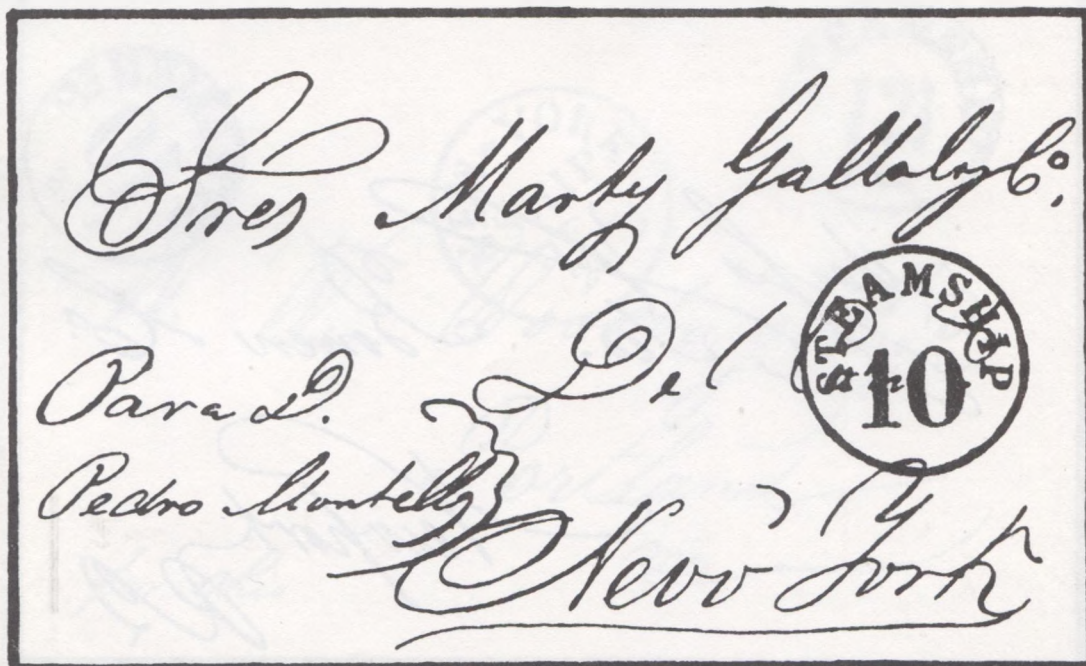 Sres Marty Gallaly Co.
De
STEAMSHIP
10
Para D.
Pedro Montells
New York